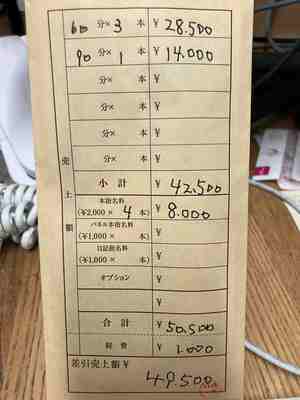 60 分× 3 本 ¥ 28.500
90 分× 1 本 ¥ 14.000
分× 本 ¥
分× 本 ¥
分× 本 ¥
分× 本 ¥
売上額
小計 ¥ 42.500
本指名料 (¥2,000 × 4 本) ¥ 8.000
パネル本指名料 (¥1,000 × 本) ¥
日記指名料 (¥1,000 × 本) ¥
オプション ¥
¥
合計 ¥ 50.500
経費 ¥ 1.000
差引売上額 ¥
49.500